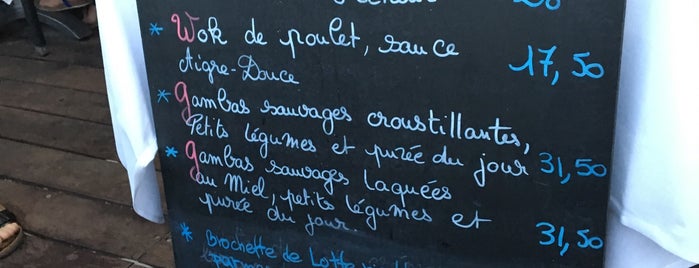 * Wok de poulet, sauce
Aigre-Douce 17,50
* Gambas sauvages croustillantes,
Petits légumes et purée du jour 31,50
* Gambas sauvages laquées
au Miel, petits légumes et
purée du jour. 31,50
* Brochette de Lotte